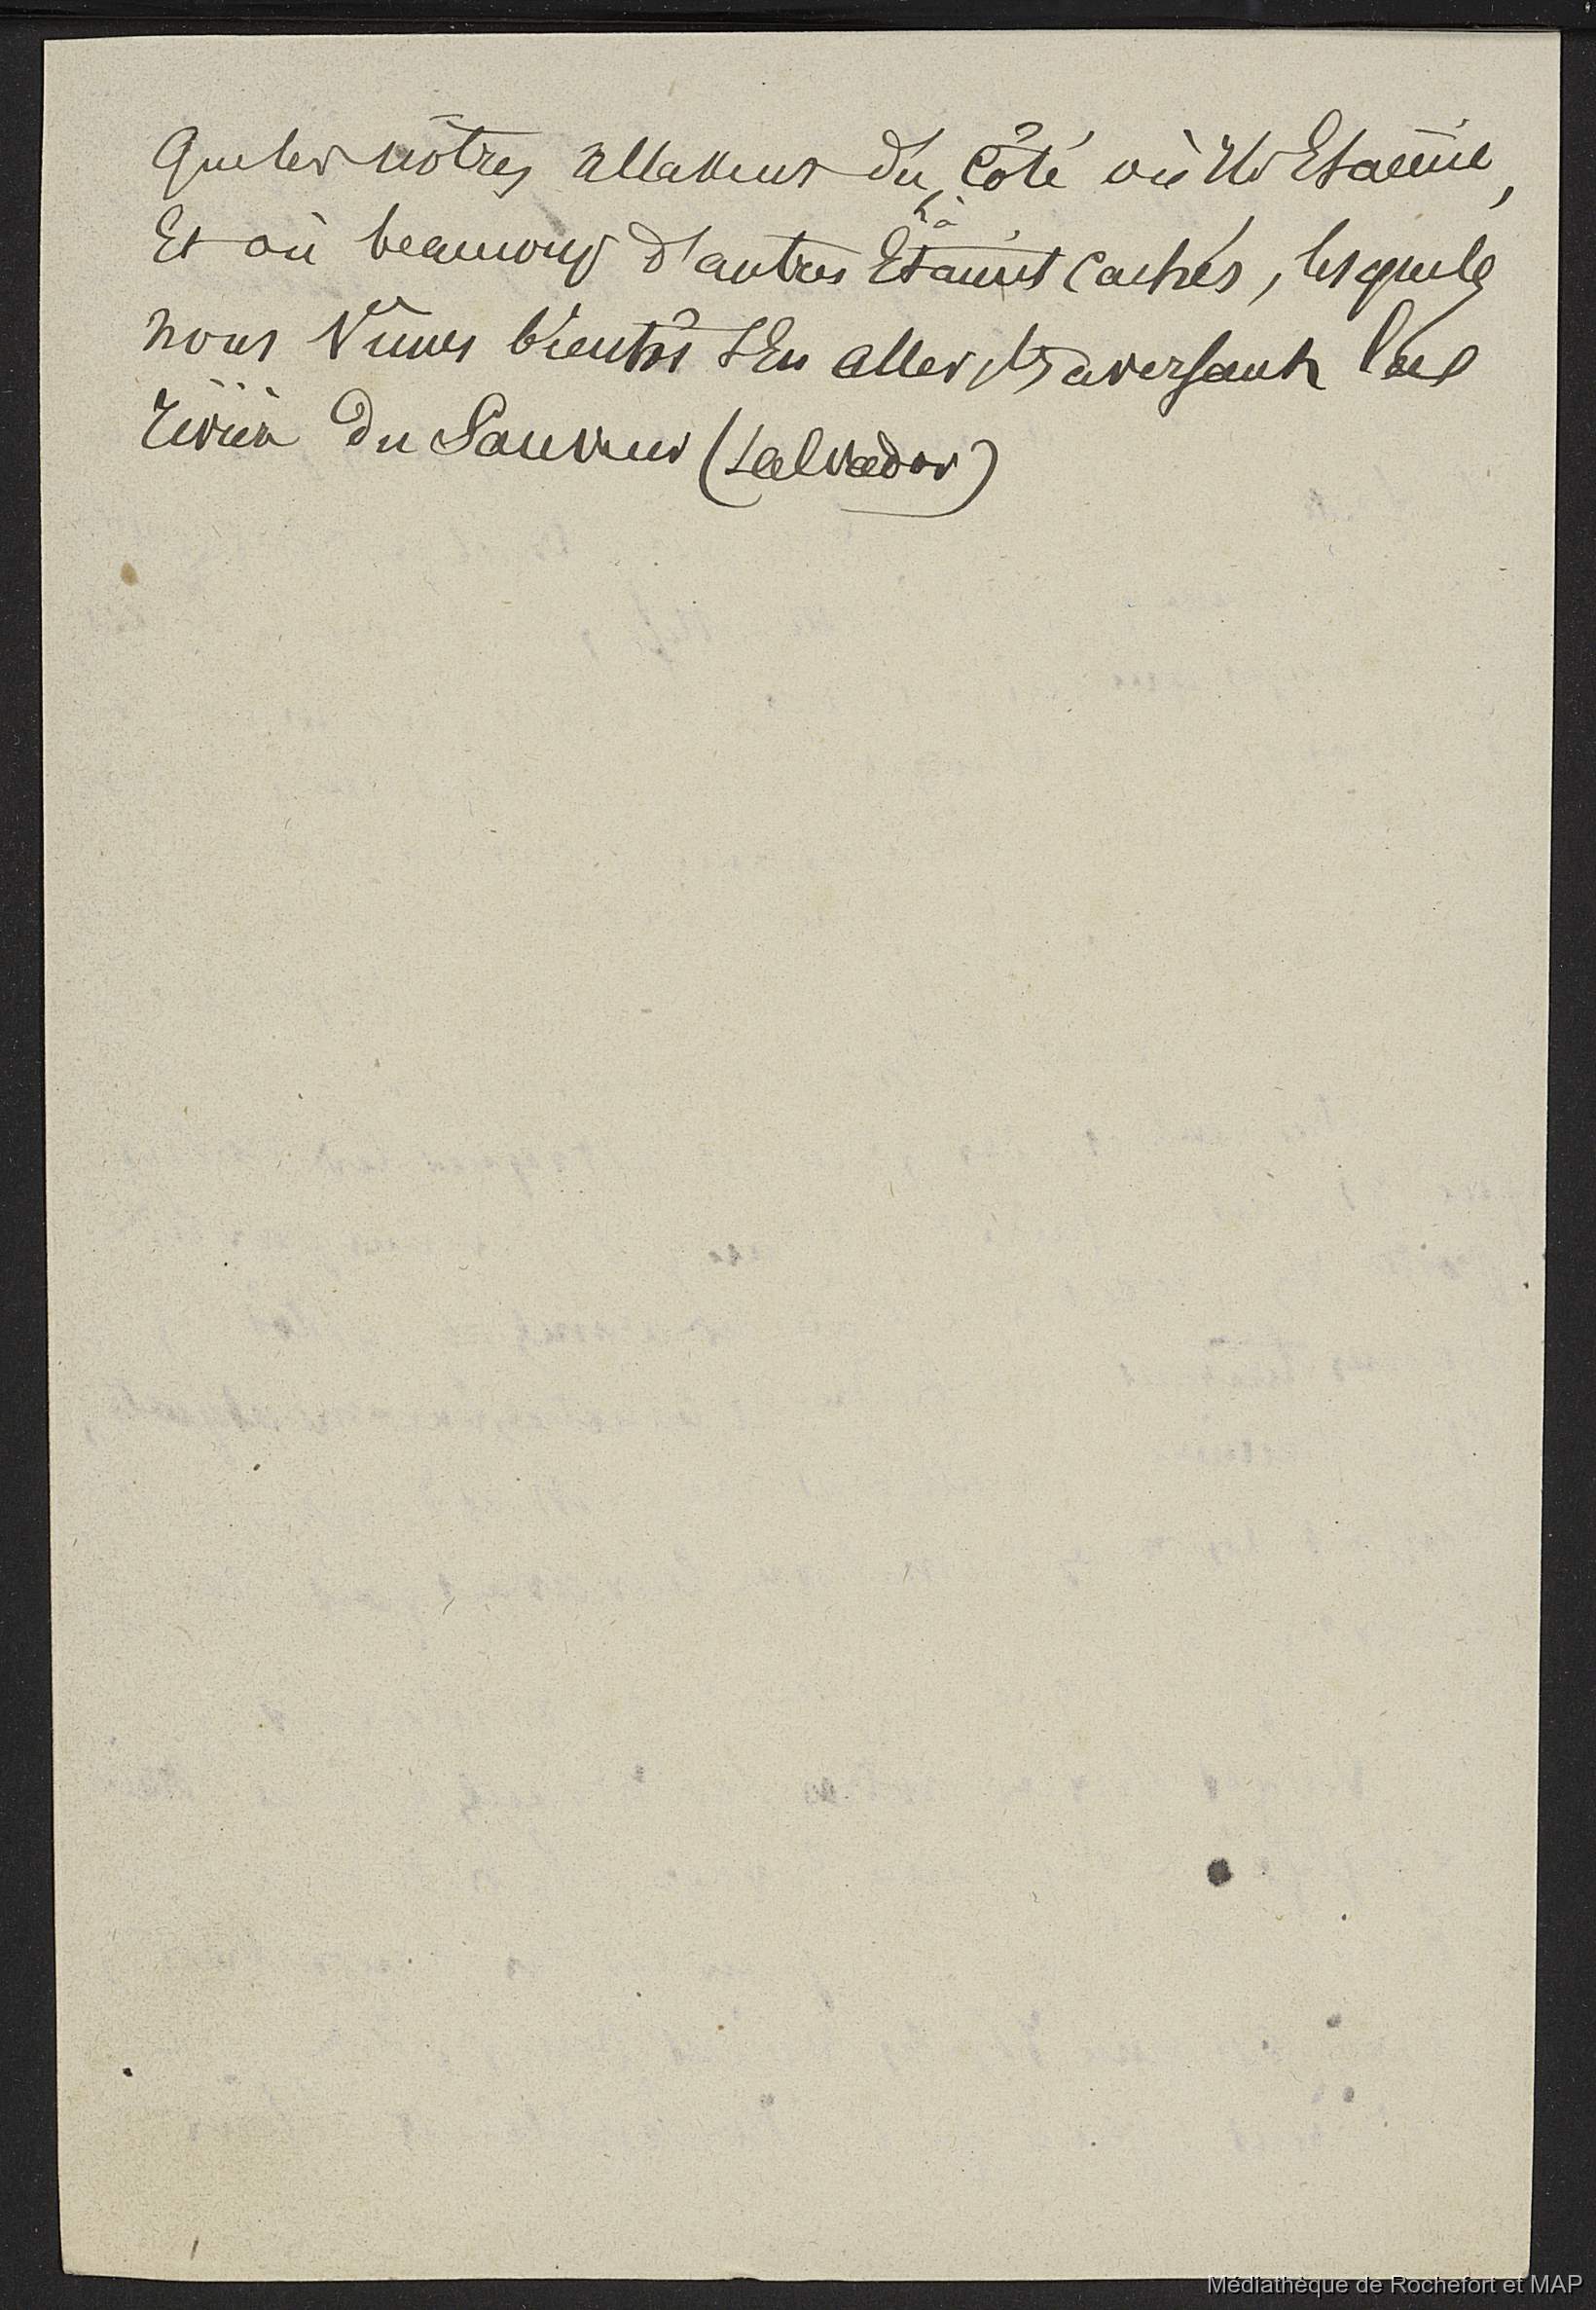 Que les nôtres allassent du côté où ils Etaient,
Et où beaucoup d'autres Etaient cachés, lesquels
nous vîmes bientôt s'En aller, traversant la
rivière du Sauveur (Salvador)
Médiathèque de Rochefort et MAP